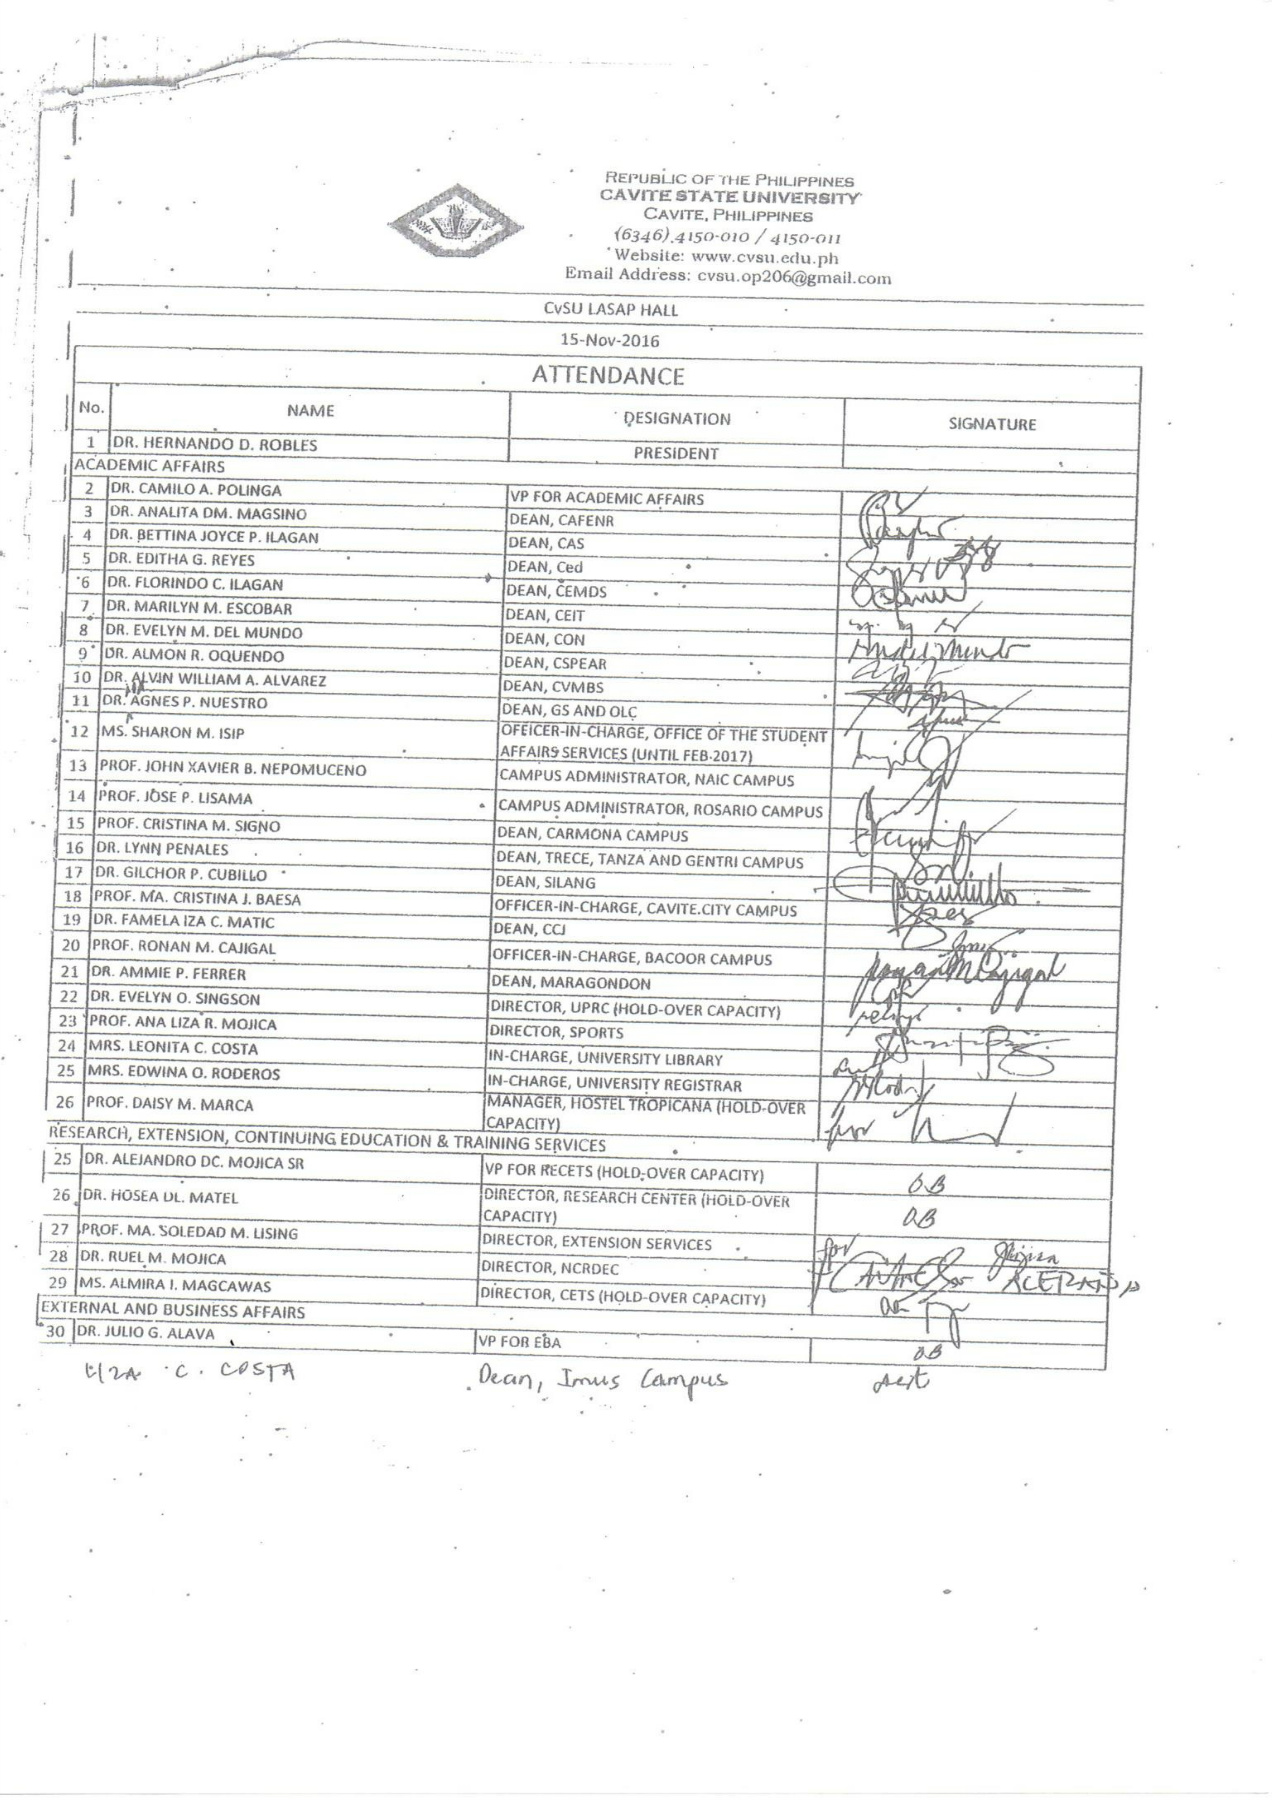 REPUBLIC OF THE PHILIPPINES
CAVITE STATE UNIVERSITY
CAVITE, PHILIPPINES
(6346) 4150-010 / 4150-011
Website: www.cvsu.edu.ph
Email Address: cvsu.op206@gmail.com
CvSU LASAP HALL
15-Nov-2016
ATTENDANCE
No. NAME DESIGNATION SIGNATURE
1 DR. HERNANDO D. ROBLES PRESIDENT
ACADEMIC AFFAIRS
2 DR. CAMILO A. POLINGA VP FOR ACADEMIC AFFAIRS
3 DR. ANALITA DM. MAGSINO DEAN, CAFENR
4 DR. BETTINA JOYCE P. ILAGAN DEAN, CAS
5 DR. EDITHA G. REYES DEAN, Ced
6 DR. FLORINDO C. ILAGAN DEAN, CEMDS
7 DR. MARILYN M. ESCOBAR DEAN, CEIT
8 DR. EVELYN M. DEL MUNDO DEAN, CON
9 DR. ALMON R. OQUENDO DEAN, CSPEAR
10 DR. ALVIN WILLIAM A. ALVAREZ DEAN, CVMBS
11 DR. AGNES P. NUESTRO DEAN, GS AND OLC
12 MS. SHARON M. ISIP OFFICER-IN-CHARGE, OFFICE OF THE STUDENT
AFFAIRS SERVICES (UNTIL FEB-2017)
13 PROF. JOHN XAVIER B. NEPOMUCENO CAMPUS ADMINISTRATOR, NAIC CAMPUS
14 PROF. JOSE P. LISAMA CAMPUS ADMINISTRATOR, ROSARIO CAMPUS
15 PROF. CRISTINA M. SIGNO DEAN, CARMONA CAMPUS
16 DR. LYNN PENALES DEAN, TRECE, TANZA AND GENTRI CAMPUS
17 DR. GILCHOR P. CUBILLO DEAN, SILANG
18 PROF. MA. CRISTINA J. BAESA OFFICER-IN-CHARGE, CAVITE CITY CAMPUS
19 DR. FAMELA IZA C. MATIC DEAN, CCJ
20 PROF. RONAN M. CAJIGAL OFFICER-IN-CHARGE, BACOOR CAMPUS
21 DR. AMMIE P. FERRER DEAN, MARAGONDON
22 DR. EVELYN O. SINGSON DIRECTOR, UPRC (HOLD-OVER CAPACITY)
23 PROF. ANA LIZA R. MOJICA DIRECTOR, SPORTS
24 MRS. LEONITA C. COSTA IN-CHARGE, UNIVERSITY LIBRARY
25 MRS. EDWINA O. RODEROS IN-CHARGE, UNIVERSITY REGISTRAR
26 PROF. DAISY M. MARCA MANAGER, HOSTEL TROPICANA (HOLD-OVER
CAPACITY) for
RESEARCH, EXTENSION, CONTINUING EDUCATION & TRAINING SERVICES
25 DR. ALEJANDRO DC. MOJICA SR VP FOR RECETS (HOLD-OVER CAPACITY) OB
26 DR. HOSEA DL. MATEL DIRECTOR, RESEARCH CENTER (HOLD-OVER
CAPACITY) OB
27 PROF. MA. SOLEDAD M. LISING DIRECTOR, EXTENSION SERVICES for
28 DR. RUEL M. MOJICA DIRECTOR, NCRDEC
29 MS. ALMIRA I. MAGCAWAS DIRECTOR, CETS (HOLD-OVER CAPACITY)
EXTERNAL AND BUSINESS AFFAIRS
30 DR. JULIO G. ALAVA VP FOR EBA OB
LIZA C. COSTA Dean, Imus Campus